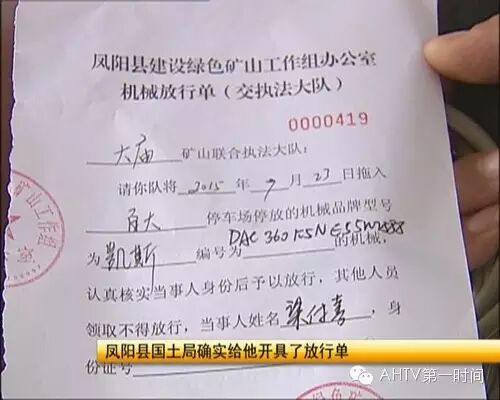 凤阳县建设绿色矿山工作组办公室
机械放行单（交执法大队）
0000419
大庙 矿山联合执法大队：
请你队将 2015 年 7 月 23 日拖入
百大 停车场停放的机械品牌型号
为 凯斯 编号为 的机械，
认真核实当事人身份后予以放行，其他人员
领取不得放行，当事人姓名 梁付喜，身
份证号
凤阳县国土局确实给他开具了放行单
AHTV第一时间